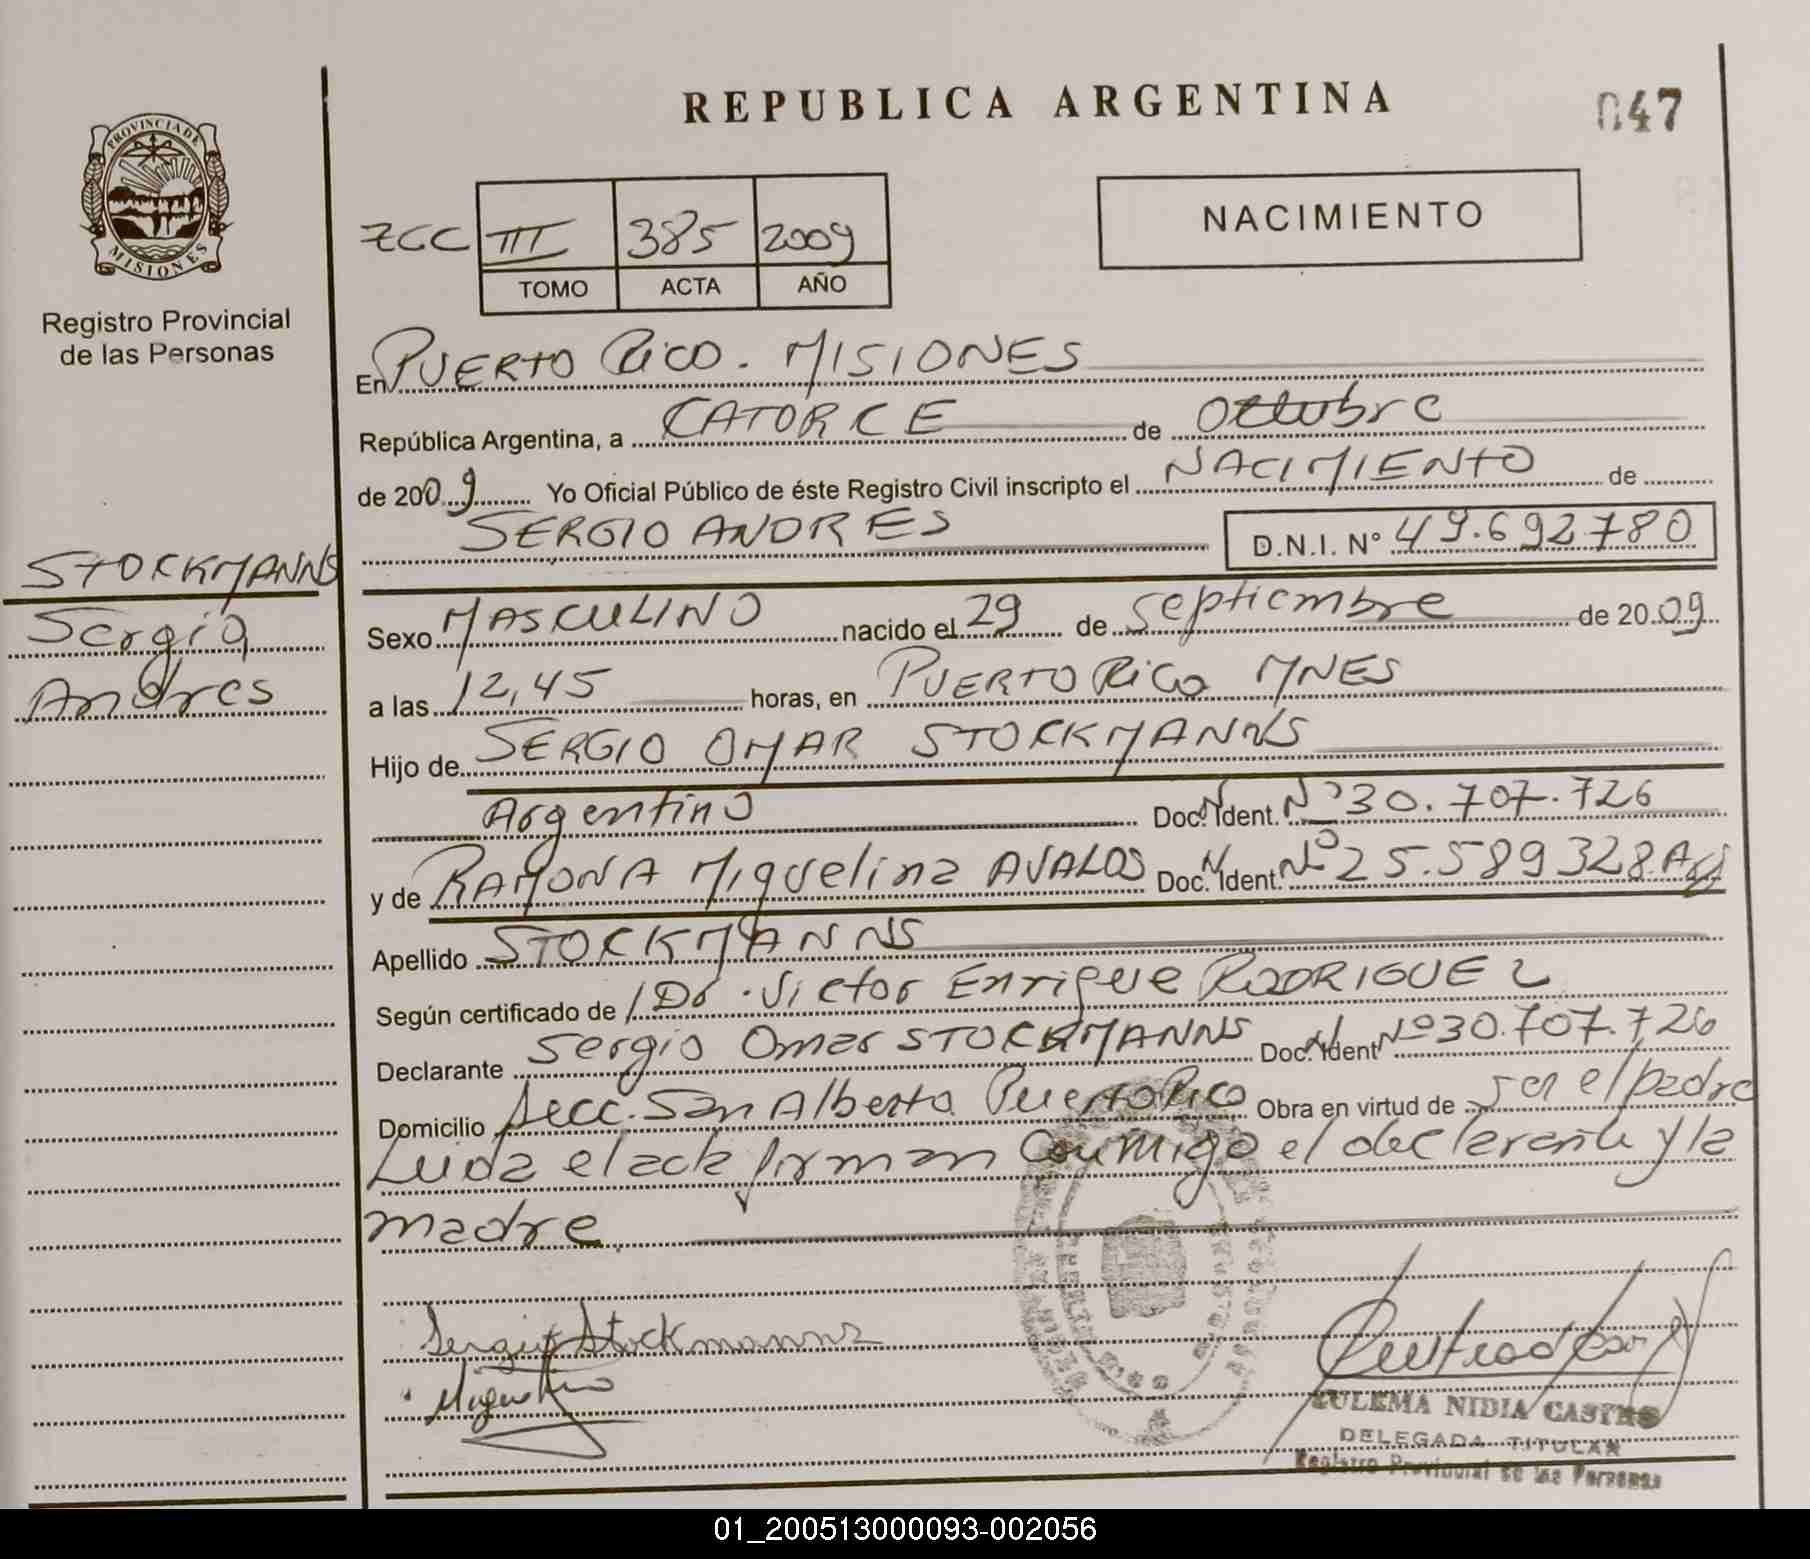 REPUBLICA ARGENTINA
047
PROVINCIA DE
MISIONES
Registro Provincial
de las Personas
III 385 2009
TOMO ACTA AÑO
NACIMIENTO
En PUERTO RICO. MISIONES
República Argentina, a CATORCE de Octubre
de 2009 Yo Oficial Público de éste Registro Civil inscripto el NACIMIENTO de
SERGIO ANDRES D.N.I. Nº 49.692.780
STOCKMANNS
Sergio
Andres
Sexo MASCULINO nacido el 29 de Septiembre de 2009
a las 12,45 horas, en PUERTO RICO MNES
Hijo de SERGIO OMAR STOCKMANNS
Argentino Doc. Ident. Nº 30.707.726
y de RAMONA Miguelina AVALOS Doc. Ident. Nº 25.589328
Apellido STOCKMANNS
Según certificado de Dr. Victor Enrique RODRIGUEZ
Declarante Sergio Omar STOCKMANNS Doc. Ident Nº 30.707.726
Domicilio Secc. San Alberto Puerto Rico Obra en virtud de ser el padre
Leida el acta firman conmigo el declarante y la
madre
Sergio Stockmanns
ZULEMA NIDIA CASTRO
DELEGADA TITULAR
Registro Provincial de las Personas
01_200513000093-002056